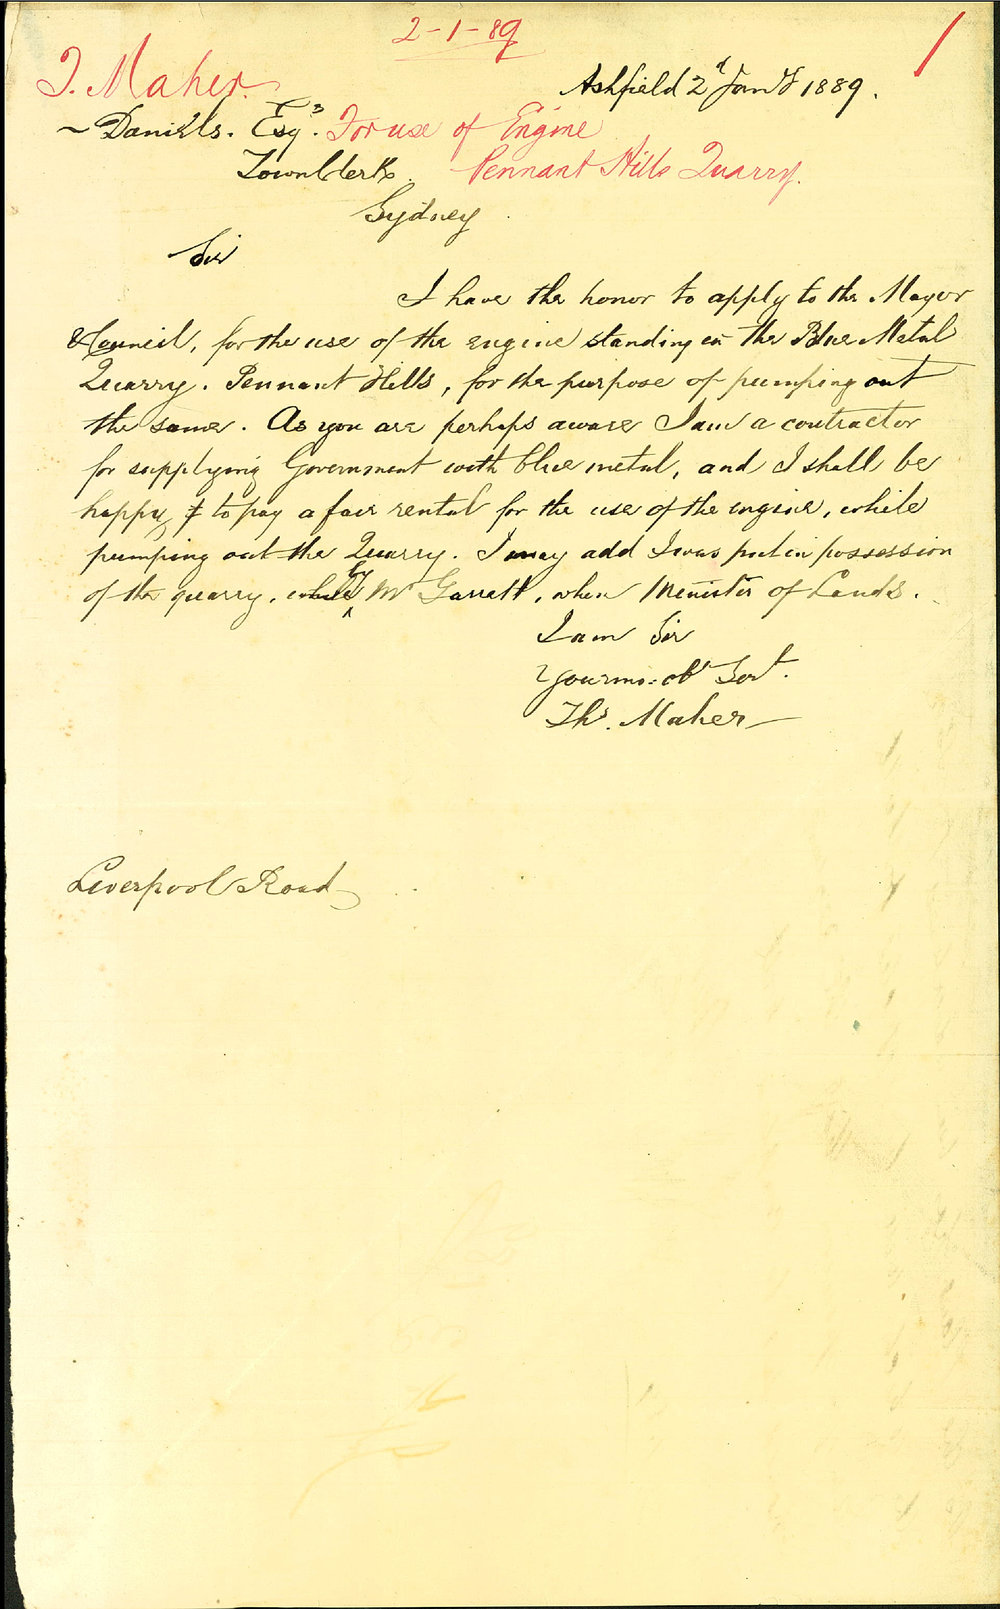 2-1-89
1
T. Maher.
Ashfield 2d Jany 1889.
~ Daniels. Esqr.
For use of Engine
Town Clerk.
Pennant Hills Quarry.
Sydney.
Sir
I have the honor to apply to the Mayor
& Council, for the use of the engine standing in the Blue Metal
Quarry. Pennant Hills, for the purpose of pumping out
the same. As you are perhaps aware I am a contractor
for supplying Government with blue metal, and I shall be
happy, to pay a fair rental for the use of the engine, while
pumping out the Quarry. I may add I was put in possession
of the quarry, while by Mr Garrett, when Minister of Lands.
I am Sir
Your mo: obt Servt.
Ths. Maher
Liverpool Road